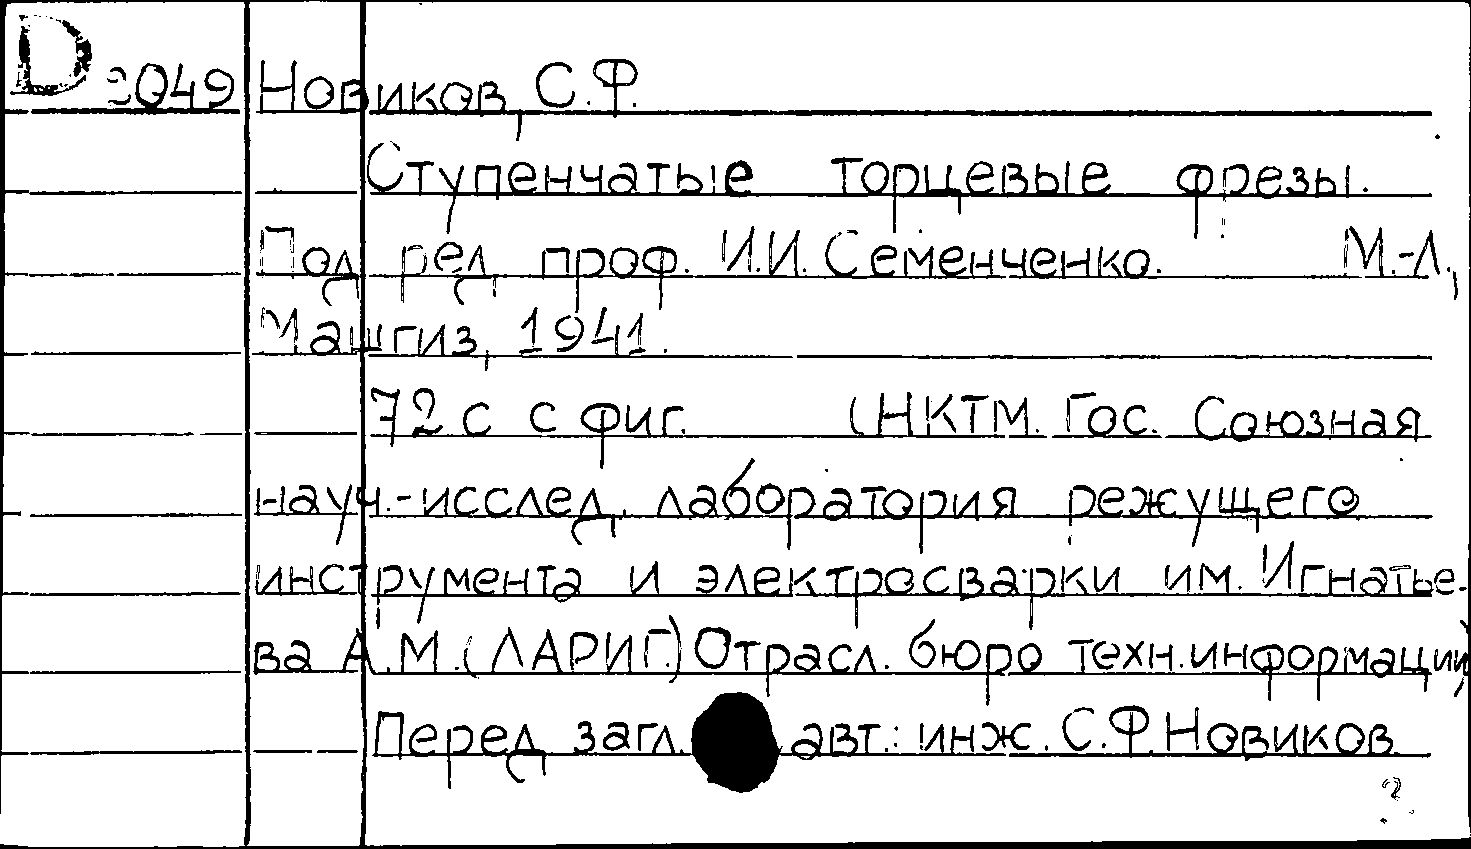 D 2049 Новиков, С.Ф.
Ступенчатые торцевые фрезы.
Под ред. проф. И.И. Семенченко. М.-Л.,
Машгиз, 1941.
72 с с фиг. (НКТМ. Гос. Союзная
науч.-исслед. лаборатория режущего
инструмента и электросварки им. Игнатье-
ва А.М. (ЛАРИГ.) Отрасл. бюро техн. информации)
Перед загл. авт.: инж. С.Ф. Новиков